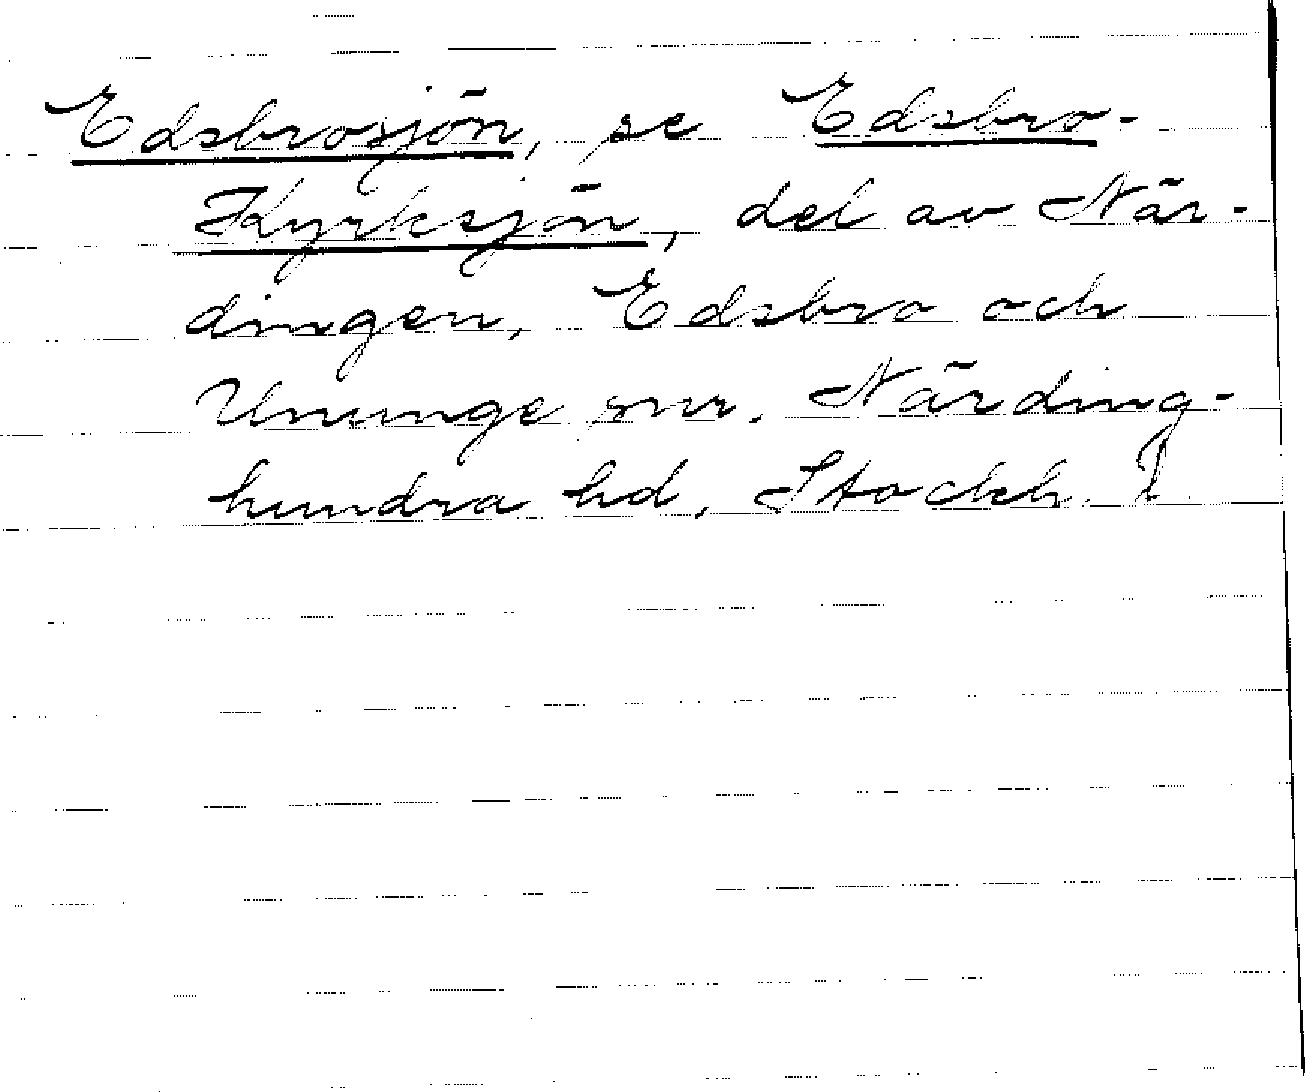 Edsbrosjön, se Edsbro-
Kyrksjön, del av När-
dingen, Edsbro och
Ununge snr. Närding-
hundra hd, Stockh. l.